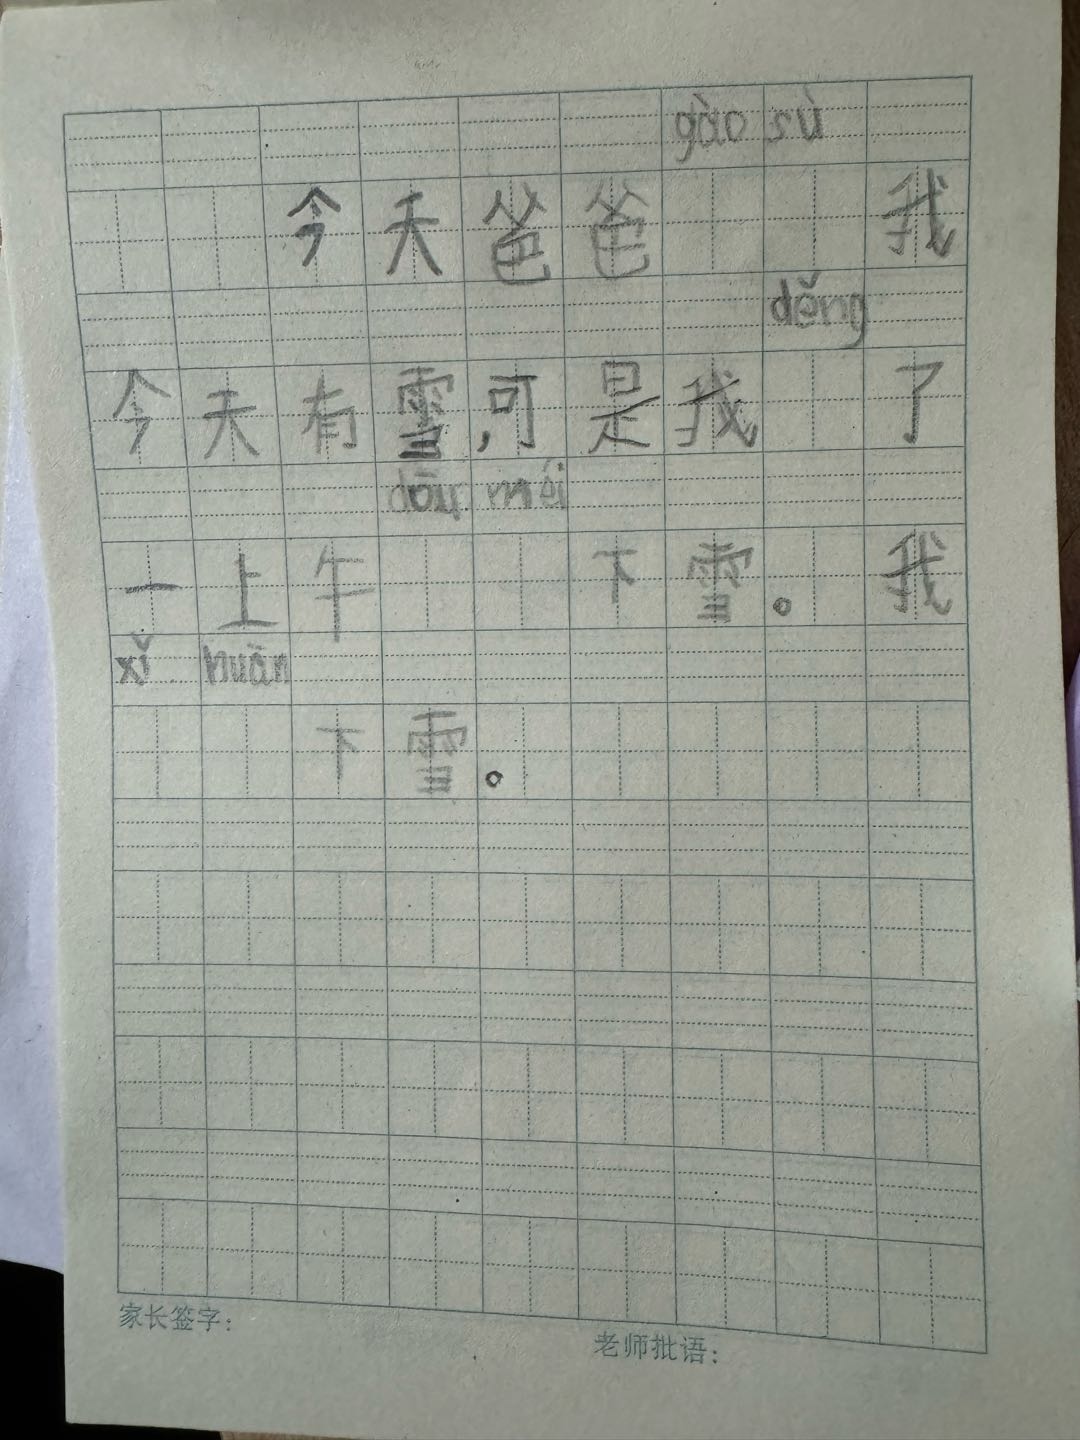 gào sù
今天爸爸我
děng
今天有雪,可是我了
dōu méi
一上午下雪。我
xǐ huān
下雪。
家长签字:
老师批语: